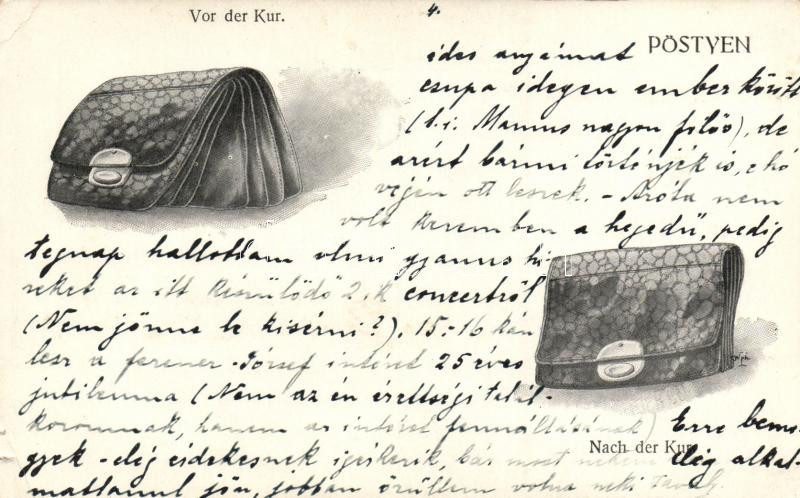 Vor der Kur.
4.
PÖSTYEN
édes anyámat
csupa idegen ember között
(t. i. Mamus nagyon félős), de
azért bármi történjék is, e hó
végén ott leszek. - Azóta nem
volt kezemben a hegedű, pedig
tegnap hallottam vlmi gyanus hi-
reket az itt készülődő 2.ik concertről
(Nem jönne le kisérni?). 15.-16 kán
lesz a ferencz-József intézet 25 éves
jubileuma (Nem az én érettségi talál-
kozomnak, hanem az intézet fennállásának) Erre bemegyek
- elég érdekesnek igérkezik, bár most nekem elég alkal-
matlanul jön, jobban örültem volna neki
Nach der Kur.